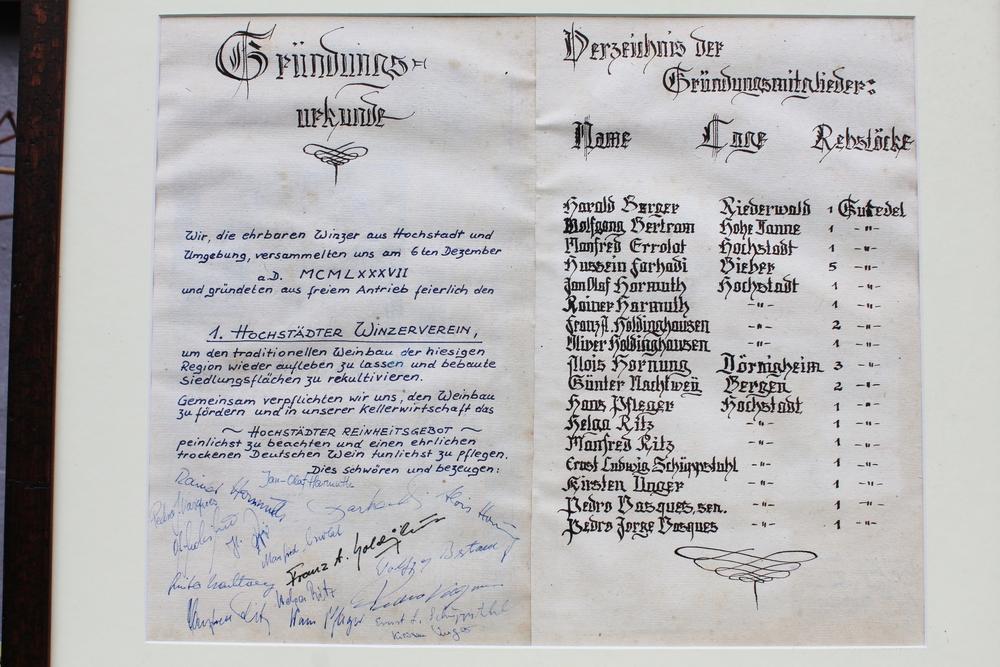 Gründungs=
urkunde
Wir, die ehrbaren Winzer aus Hochstadt und
Umgebung, versammelten uns am 6ten Dezember
a.D. MCMLXXXVII
und gründeten aus freiem Antrieb feierlich den
1. HOCHSTÄDTER WINZERVEREIN,
um den traditionellen Weinbau der hiesigen
Region wieder aufleben zu lassen und bebaute
Siedlungsflächen zu rekultivieren.
Gemeinsam verpflichten wir uns, den Weinbau
zu fördern und in unserer Kellerwirtschaft das
~ HOCHSTÄDTER REINHEITSGEBOT ~
peinlichst zu beachten und einen ehrlichen
trockenen Deutschen Wein tunlichst zu pflegen.
Dies schwören und bezeugen:
Jan-Olaf Harmuth
Rainer Harmuth
Franz A. Holdinghausen
Helga Ritz
Manfred Ritz
Hans Pfleger
Ernst L. Schüppstuhl
Kirsten Unger
Verzeichnis der
Gründungsmitglieder:
Name Lage Rebstöcke
Harald Berger Riederwald 1 Gutedel
Wolfgang Bertram Hohe Tanne 1 -"-
Manfred Errolat Hochstadt 1 -"-
Hussein Farhadi Bieber 5 -"-
Jan Olaf Harmuth Hochstadt 1 -"-
Rainer Harmuth -"- 1 -"-
Franz A. Holdinghausen -"- 2 -"-
Oliver Holdinghausen -"- 1 -"-
Alois Hornung Dörnigheim 3 -"-
Günter Nachtweÿ Bergen 2 -"-
Hans Pfleger Hochstadt 1 -"-
Helga Ritz -"- 1 -"-
Manfred Ritz -"- 1 -"-
Ernst Ludwig Schüppstuhl -"- 1 -"-
Kirsten Unger -"- 1 -"-
Pedro Vasques, sen. -"- 1 -"-
Pedro Jorge Vasques -"- 1 -"-